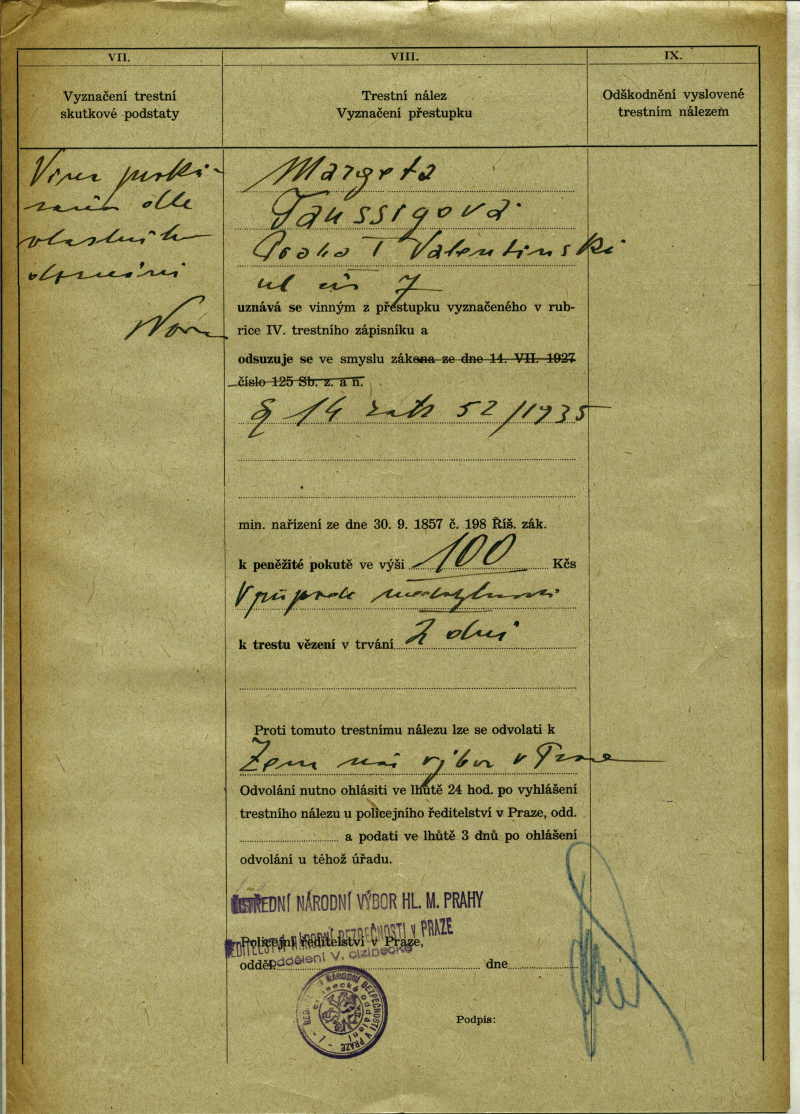 VII.
Vyznačení trestní
skutkové podstaty
Vina proká-
zána dle
vlastního
doznání
VIII.
Trestní nález
Vyznačení přestupku
Margeta
Taussigová
Praha I Valentinská
ul čís 7
uznává se vinným z přestupku vyznačeného v rub-
rice IV. trestního zápisníku a
odsuzuje se ve smyslu zákona ze dne 14. VII. 1927
číslo 125 Sb. z. a n.
§ 14 zák 52/1935
min. nařízení ze dne 30. 9. 1857 č. 198 Říš. zák.
k peněžité pokutě ve výši 100 Kčs
V případě nedobytnosti
k trestu vězení v trvání 2 dnů
Proti tomuto trestnímu nálezu lze se odvolati k
Zem nár výbor v Praze
Odvolání nutno ohlásiti ve lhůtě 24 hod. po vyhlášení
trestního nálezu u policejního ředitelství v Praze, odd.
a podati ve lhůtě 3 dnů po ohlášení
odvolání u téhož úřadu.
ÚSTŘEDNÍ NÁRODNÍ VÝBOR HL. M. PRAHY
ŘEDITELSTVÍ NÁRODNÍ BEZPEČNOSTI V PRAZE
Policejní ředitelství v Praze,
oddělení V. cizinecké
odděl. dne
ŘED. NÁRODNÍ BEZPEČNOSTI V PRAZE
cizinecké oddělení
- 1 -
Podpis:
IX.
Odškodnění vyslovené
trestním nálezem